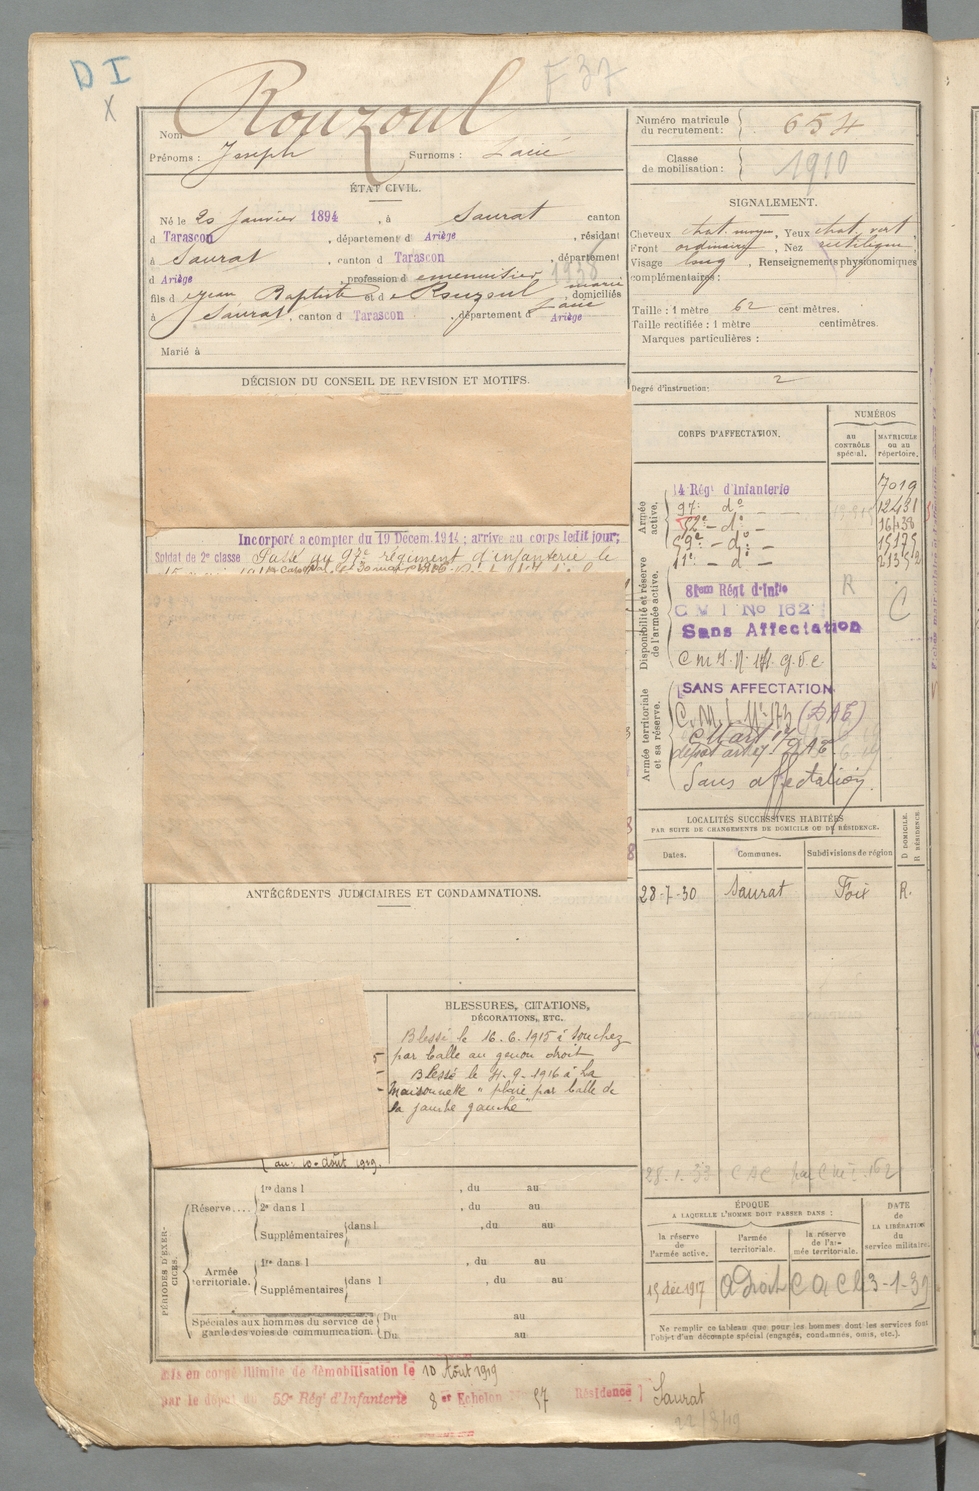 D I
X
F 37
Rouzoul
Nom
Prénoms : Joseph Surnoms :
ÉTAT CIVIL.
Né le 20 Janvier 1894, à Saurat canton
d Tarascon, département d Ariège, résidant
à Saurat, canton d Tarascon, département
d Ariège, profession d menuisier 1938
fils d Jean Baptiste et d Rouzoul marie, domiciliés
à Saurat, canton d Tarascon, département d Ariège
Marié à
DÉCISION DU CONSEIL DE REVISION ET MOTIFS.
Incorporé à compter du 19 Décem. 1914 ; arrivé au corps ledit jour;
Soldat de 2e classe Passé au 97e régiment d'infanterie le
caporal le 30 mars 1916
ANTÉCÉDENTS JUDICIAIRES ET CONDAMNATIONS.
BLESSURES, CITATIONS,
DÉCORATIONS, ETC.
Blessé le 16.6.1915 à Souchez
par balle au genou droit
Blessé le 4-9-1916 à La
Maisonnette "plaie par balle de
la jambe gauche"
au 10 Août 1919.
PÉRIODES D'EXERCICES.
Réserve....
1re dans l , du au
2e dans l , du au
Supplémentaires dans l , du au
Armée territoriale.
1re dans l , du au
Supplémentaires dans l , du au
Spéciales aux hommes du service de
garde des voies de communication.
Du au
Du au
Mis en congé illimité de démobilisation le 10 Août 1919
par le dépôt du 59e Régt d'Infanterie 8 e Echelon N° 57 Résidence Saurat
Numéro matricule
du recrutement : 654
Classe
de mobilisation : 1910
SIGNALEMENT.
Cheveux chat. moyen, Yeux chat. vert,
Front ordinaire, Nez rectiligne
Visage long, Renseignements physionomiques
complémentaires :
Taille : 1 mètre 62 centimètres.
Taille rectifiée : 1 mètre centimètres.
Marques particulières :
Degré d'instruction: 2
CORPS D'AFFECTATION.
NUMÉROS
au
CONTRÔLE
spécial.
MATRICULE
ou au
répertoire.
Armée
active.
14 Régt d'Infanterie 7019
97e do 12431
52e - do - 16438
59e - do - 15175
11e - do -
Disponibilité et réserve
de l'armée active.
81em Régt d'Inf1e R
C M I No 162 C
Sans Affectation
C m I. N° 171. g.v.c.
Armée territoriale
et sa réserve.
SANS AFFECTATION
C. M. I. N° 173 (DAE)
Sans affectation.
LOCALITÉS SUCCESSIVES HABITÉES
PAR SUITE DE CHANGEMENTS DE DOMICILE OU DE RÉSIDENCE.
Dates. Communes. Subdivisions de région
D DOMICILE.
R RÉSIDENCE.
28-7-30 Saurat Foix R.
28.1.33 CAC par C M I. 162
ÉPOQUE
A LAQUELLE L'HOMME DOIT PASSER DANS :
la réserve
de
l'armée active.
l'armée
territoriale.
la réserve
de l'ar-
mée territoriale.
DATE
de
LA LIBÉRATION
du
service militaire.
15 déc 1917
Ne remplir ce tableau que pour les hommes dont les services font
l'objet d'un décompte spécial (engagés, condamnés, omis, etc.).